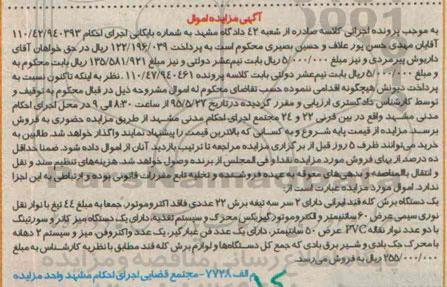 آگهی مزایده اموال
به موجب پرونده اجرائی کلاسه صادره از شعبه ۴۲ دادگاه مشهد به شماره بایگانی اجرای احکام ۱۱۰/۴۲/۹۴۰۳۹۳
آقایان مهدی حسن پور علاف و حسین بصیری محکوم است به پرداخت ۱۲۲/۱۹۶/۰۳۹ ریال در حق خواهان آقای
داریوش پیرمردی و نیز مبلغ ۵/۰۰۰/۰۰۰ ریال بابت نیم عشر دولتی و نیز مبلغ ۱۳۵/۵۸۱/۹۲۱ ریال بابت محکوم به
و مبلغ ۵/۰۰۰/۰۰۰ ریال بابت نیم عشر دولتی بابت کلاسه پرونده ۱۱۰/۴۷/۹۴۰۴۶۱. نظر به اینکه تاکنون نسبت به
پرداخت دیونش هیچگونه اقدامی ننموده حسب تقاضای محکوم له اموال مشروحه ذیل در قبال محکوم به توقیف و
توسط کارشناس دادگستری ارزیابی و مقرر گردیده در تاریخ ۹۵/۵/۲۷ از ساعت ۸:۳۰ الی ۹ در محل اجرای احکام
مدنی مشهد واقع در بین قرنی ۲۲ و ۲۴ مجتمع اجرای احکام مدنی مشهد از طریق مزایده حضوری به فروش
برسد. مزایده از قیمت پایه شروع و به کسانی که بالاترین قیمت را پیشنهاد نمایند واگذار خواهد شد. طالبین به
خرید می‌توانند ظرف ۵ روز قبل از برگزاری مزایده مراجعه تا ترتیب بازدید آنان از اموال داده شود. ضمنا حداقل
ده درصد از بهای فروش مورد مزایده نقدا و فی المجلس از برنده وصول خواهد شد. هزینه‌های تنظیم سند و نقل
و انتقال بالمناصفه و بدهی‌های معوقه به عهده فروشنده و تخلیه تابع مقررات قانونی بوده و ارتباطی به این اجرا
ندارد. اموال مورد مزایده عبارت است از:
یک دستگاه برش کله قند ایرانی دارای ۲ سر سه تیغه برش ۲۲ عددی فاقد الکتروموتور، جمعا به مبلغ ۶۴ تیغ با نوار نقل
یوری سیمی عرض ۶۰ سانتیمتر و الکتروموتور گیربکس محرک و سیستم تغذیه، دارای یک دستگاه میز کاتر و سورتینگ
با دو عدد نوار نقاله PVC عرض ۵۰ سانتیمتر، دارای یک عدد فن غبارگیر، یک عدد واکتروفن، میز و سیستم ۲ دهانه
با محرک جک بادی و شیر برق بادی که جمع کل دستگاه‌ها و لوازم برش کله قند مطابق با نظریه کارشناس به مبلغ
۲۵۵/۰۰۰/۰۰۰ ریال به فروش می‌رسد.
الف ۷۷۲۸- مجتمع قضایی اجرای احکام مشهد واحد مزایده